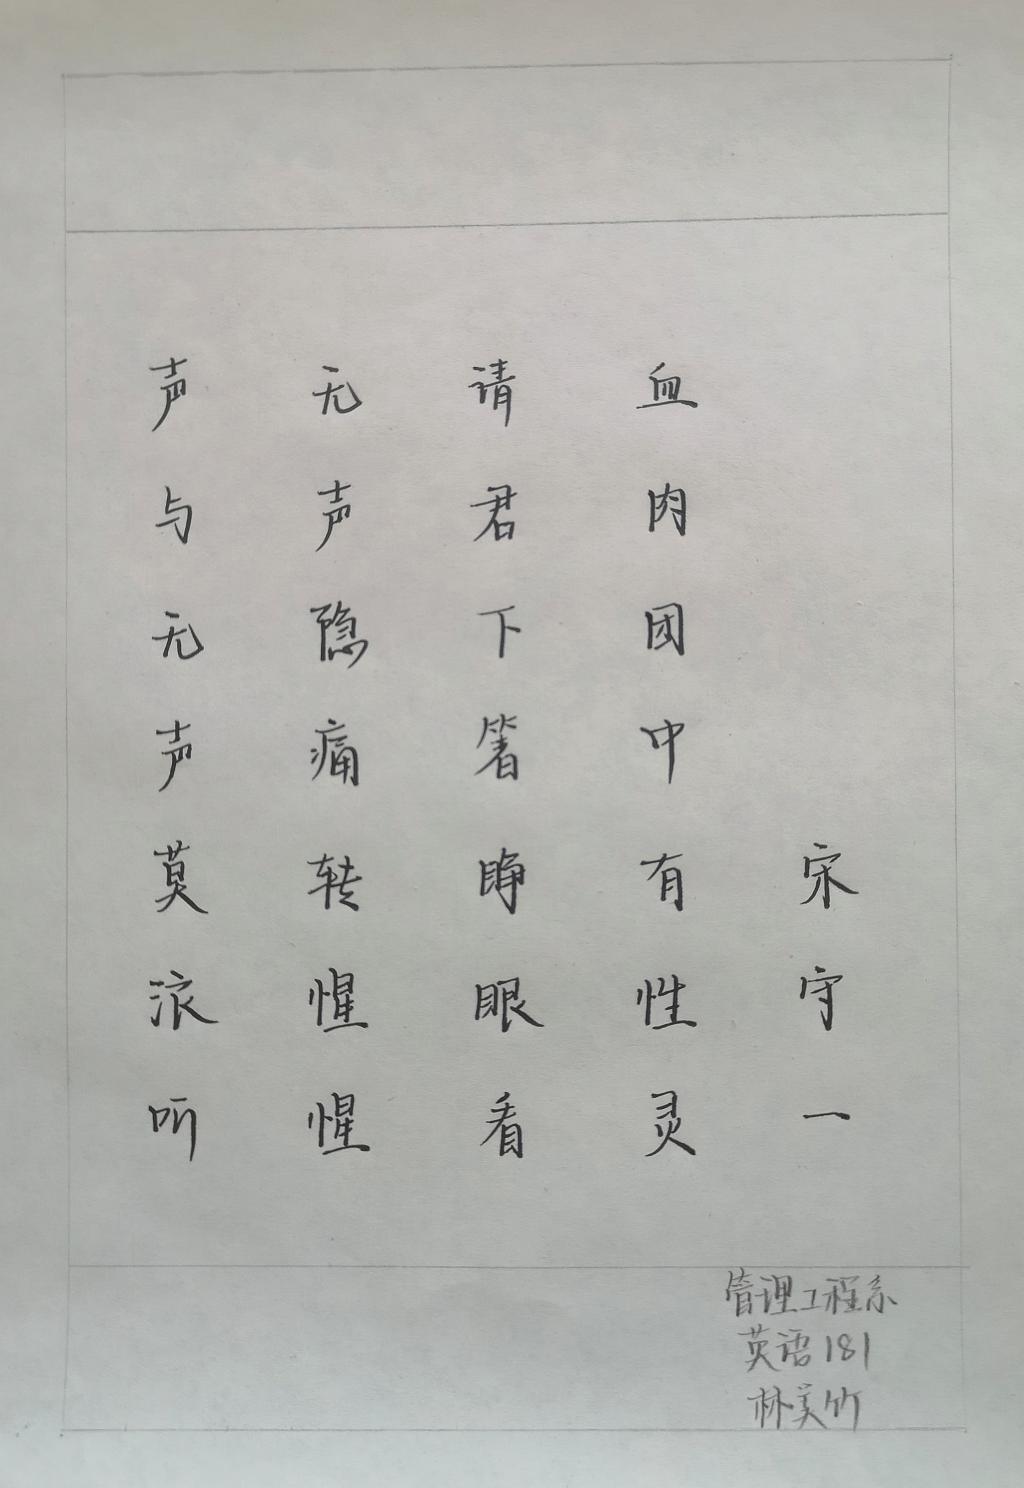 声与无声莫浪听
无声隐痛转惺惺
请君下箸睁眼看
血肉团中有性灵
宋守一
管理工程系
英语181
林美竹